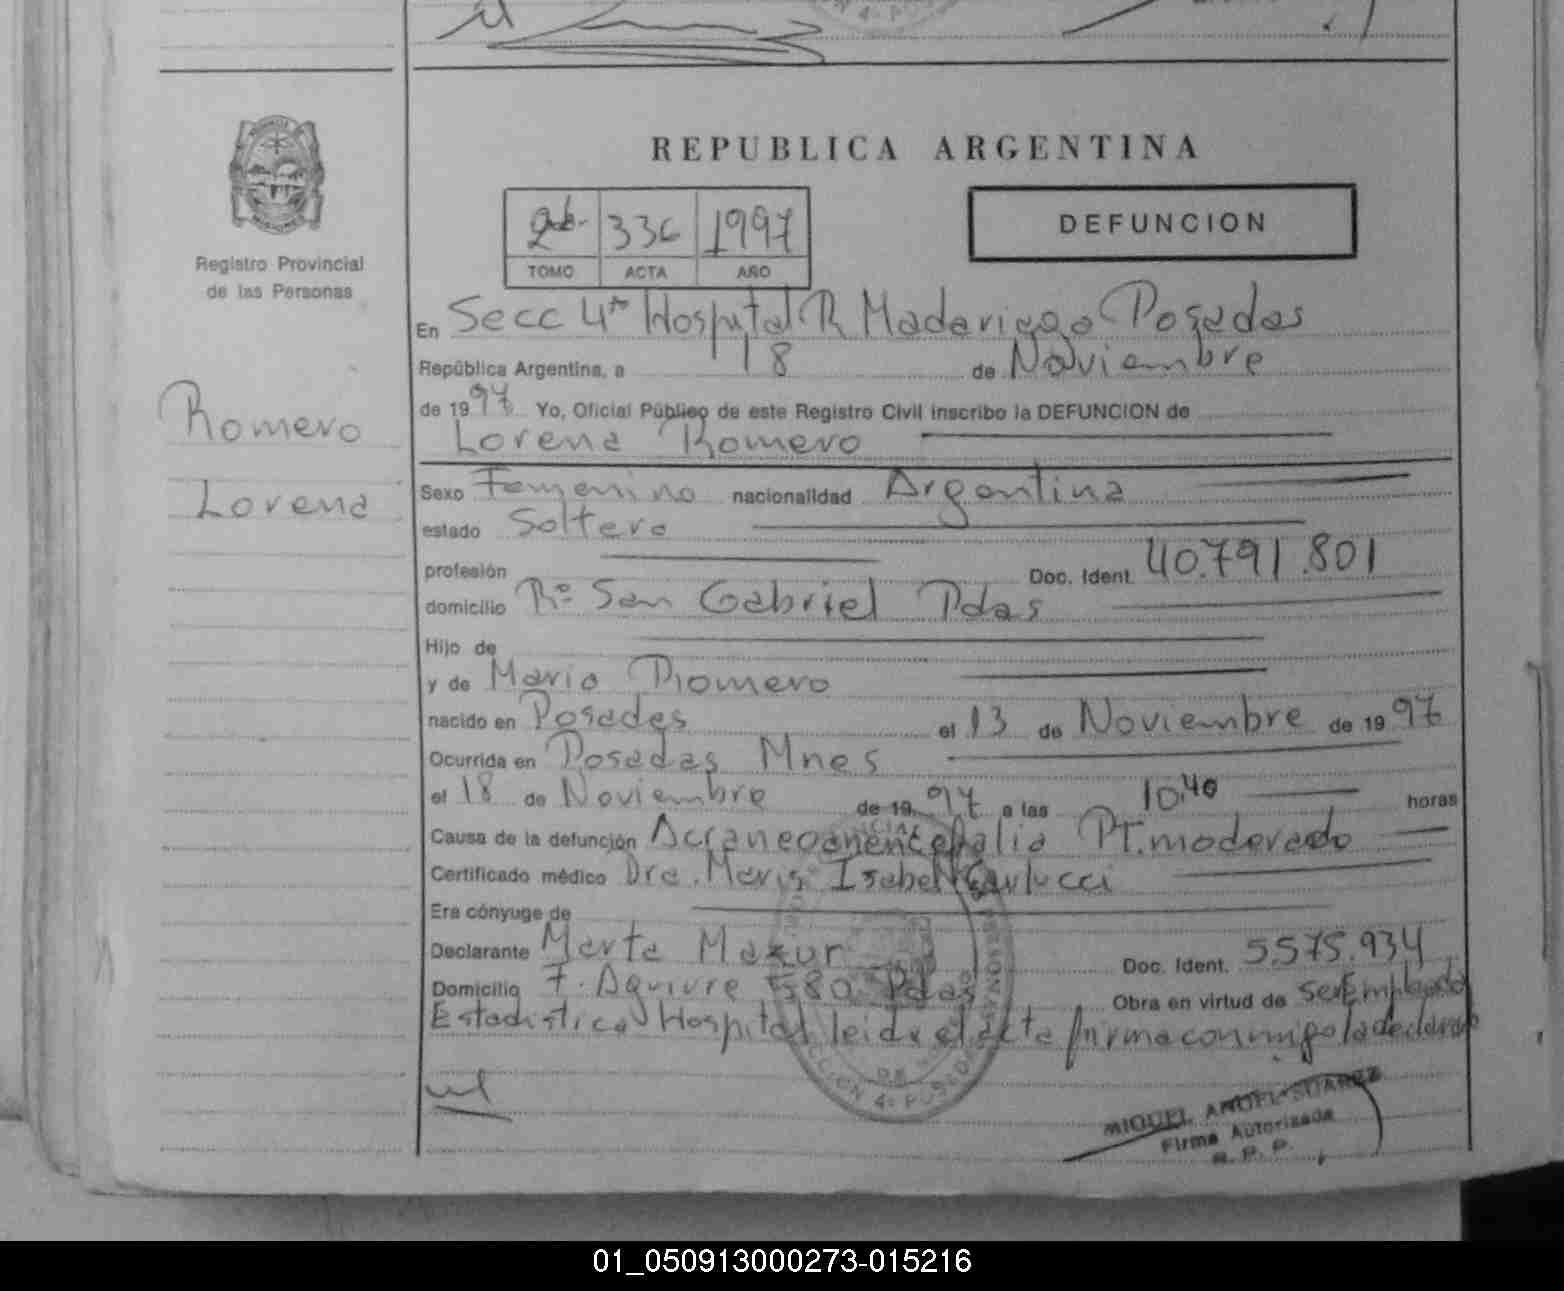 REPUBLICA ARGENTINA
336 1997
TOMO ACTA AÑO
DEFUNCION
Registro Provincial
de las Personas
Romero
Lorena
En Secc 4ta Hospital R Madariaga Posadas
República Argentina, a 18 de Noviembre
de 1997 Yo, Oficial Público de este Registro Civil inscribo la DEFUNCION de
Lorena Romero
Sexo Femenino nacionalidad Argentina
estado Soltera
profesión Doc. Ident. 40.791.801
domicilio Bº San Gabriel Pdas
Hijo de
y de Mario Romero
nacido en Posadas el 13 de Noviembre de 1997
Ocurrida en Posadas Mnes
el 18 de Noviembre de 1997 a las 10,40 horas
Causa de la defunción Acraneoanencefalia PT. moderado
Certificado médico Dra. Maria Isabel Carlucci
Era cónyuge de
Declarante Marta Mazur Doc. Ident. 5.575.934
Domicilio F. Aguirre 580 Pdas Obra en virtud de ser Empleada
Estadistica Hospital leida el acta firma conmigo la declarante
MIGUEL ANGEL SUAREZ
Firma Autorizada
R. P. P.
01_050913000273-015216